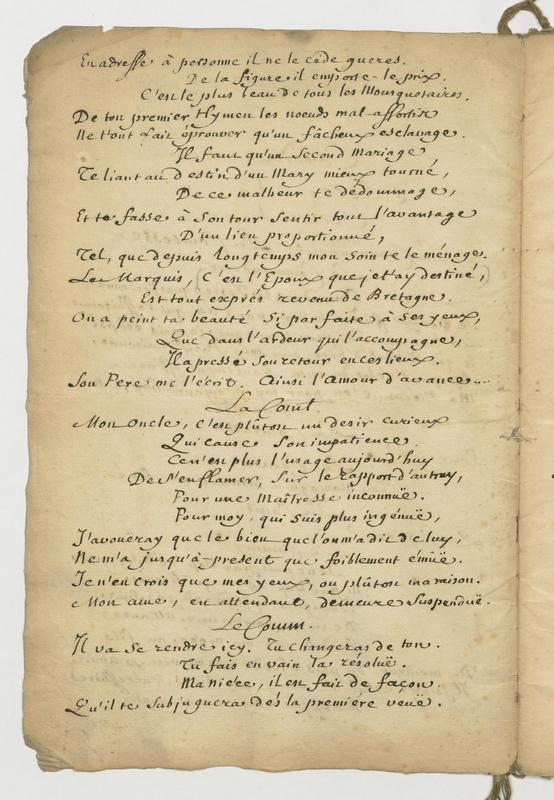 En adresse à personne il ne le céde gueres.
De la figure il emporte le prix.
C'est le plus beau de tous les Mousquetaires.
De ton premier Hymen les noeuds mal-assortis
Ne t'ont fait éprouver qu'un fâcheux esclavage.
Il faut qu'un second Mariage,
Te liant au destin d'un Mary mieux tourné,
De ce malheur te dédommage,
Et te fasse à son tour sentir tout l'avantage
D'un lien proportionné,
Tel, que depuis longtemps mon soin te le ménage.
Le Marquis, C'est l'Epoux que je t'ay destiné,
Est tout exprés revenu de Bretagne.
On a peint ta beauté si parfaite à ses yeux,
Que dans l'ardeur qui l'accompagne,
Il a pressé son retour en ces lieux.
Son Pere me l'écrit. Ainsi l'amour d'avance....
La Comt.
Mon Oncle, c'est plûtost un desir curieux
Qui cause son impatience.
Ce n'est plus l'usage aujourd'huy
De s'enflamer, sur le rapport d'autruy,
Pour une Maîtresse inconnuë.
Pour moy, qui suis plus ingénuë,
J'avoueray que le bien que l'on m'a dit de luy,
Ne m'a jusqu'à-present que foiblement émuë.
Je n'en crois que mes yeux, ou plûtost ma raison.
Mon ame, en attendant, demeure suspenduë.
Le Comm.
Il va se rendre icy. Tu changeras de ton.
Tu fais en vain la résoluë.
Ma Niéce, il est fait de façon
Qu'il te subjuguera dés la premiére veuë.